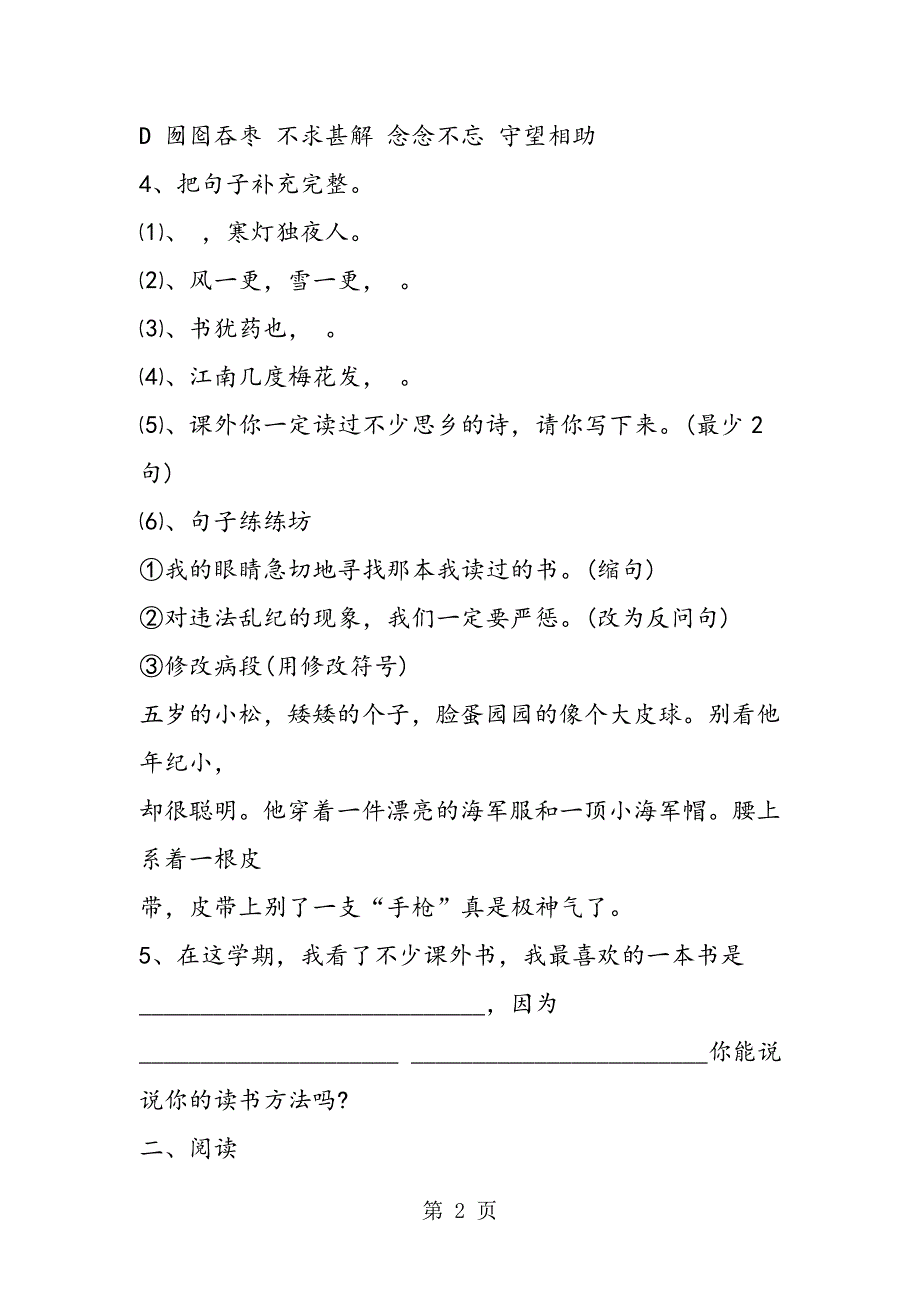 D 囫囵吞枣 不求甚解 念念不忘 守望相助
4、把句子补充完整。
⑴、 ，寒灯独夜人。
⑵、风一更，雪一更， 。
⑶、书犹药也， 。
⑷、江南几度梅花发， 。
⑸、课外你一定读过不少思乡的诗，请你写下来。(最少2
句)
⑹、句子练练坊
①我的眼睛急切地寻找那本我读过的书。(缩句)
②对违法乱纪的现象，我们一定要严惩。(改为反问句)
③修改病段(用修改符号)
五岁的小松，矮矮的个子，脸蛋园园的像个大皮球。别看他
年纪小，
却很聪明。他穿着一件漂亮的海军服和一顶小海军帽。腰上
系着一根皮
带，皮带上别了一支“手枪”真是极神气了。
5、在这学期，我看了不少课外书，我最喜欢的一本书是
____________________________，因为
_____________________ ________________________你能说
说你的读书方法吗?
二、阅读
第 2 页